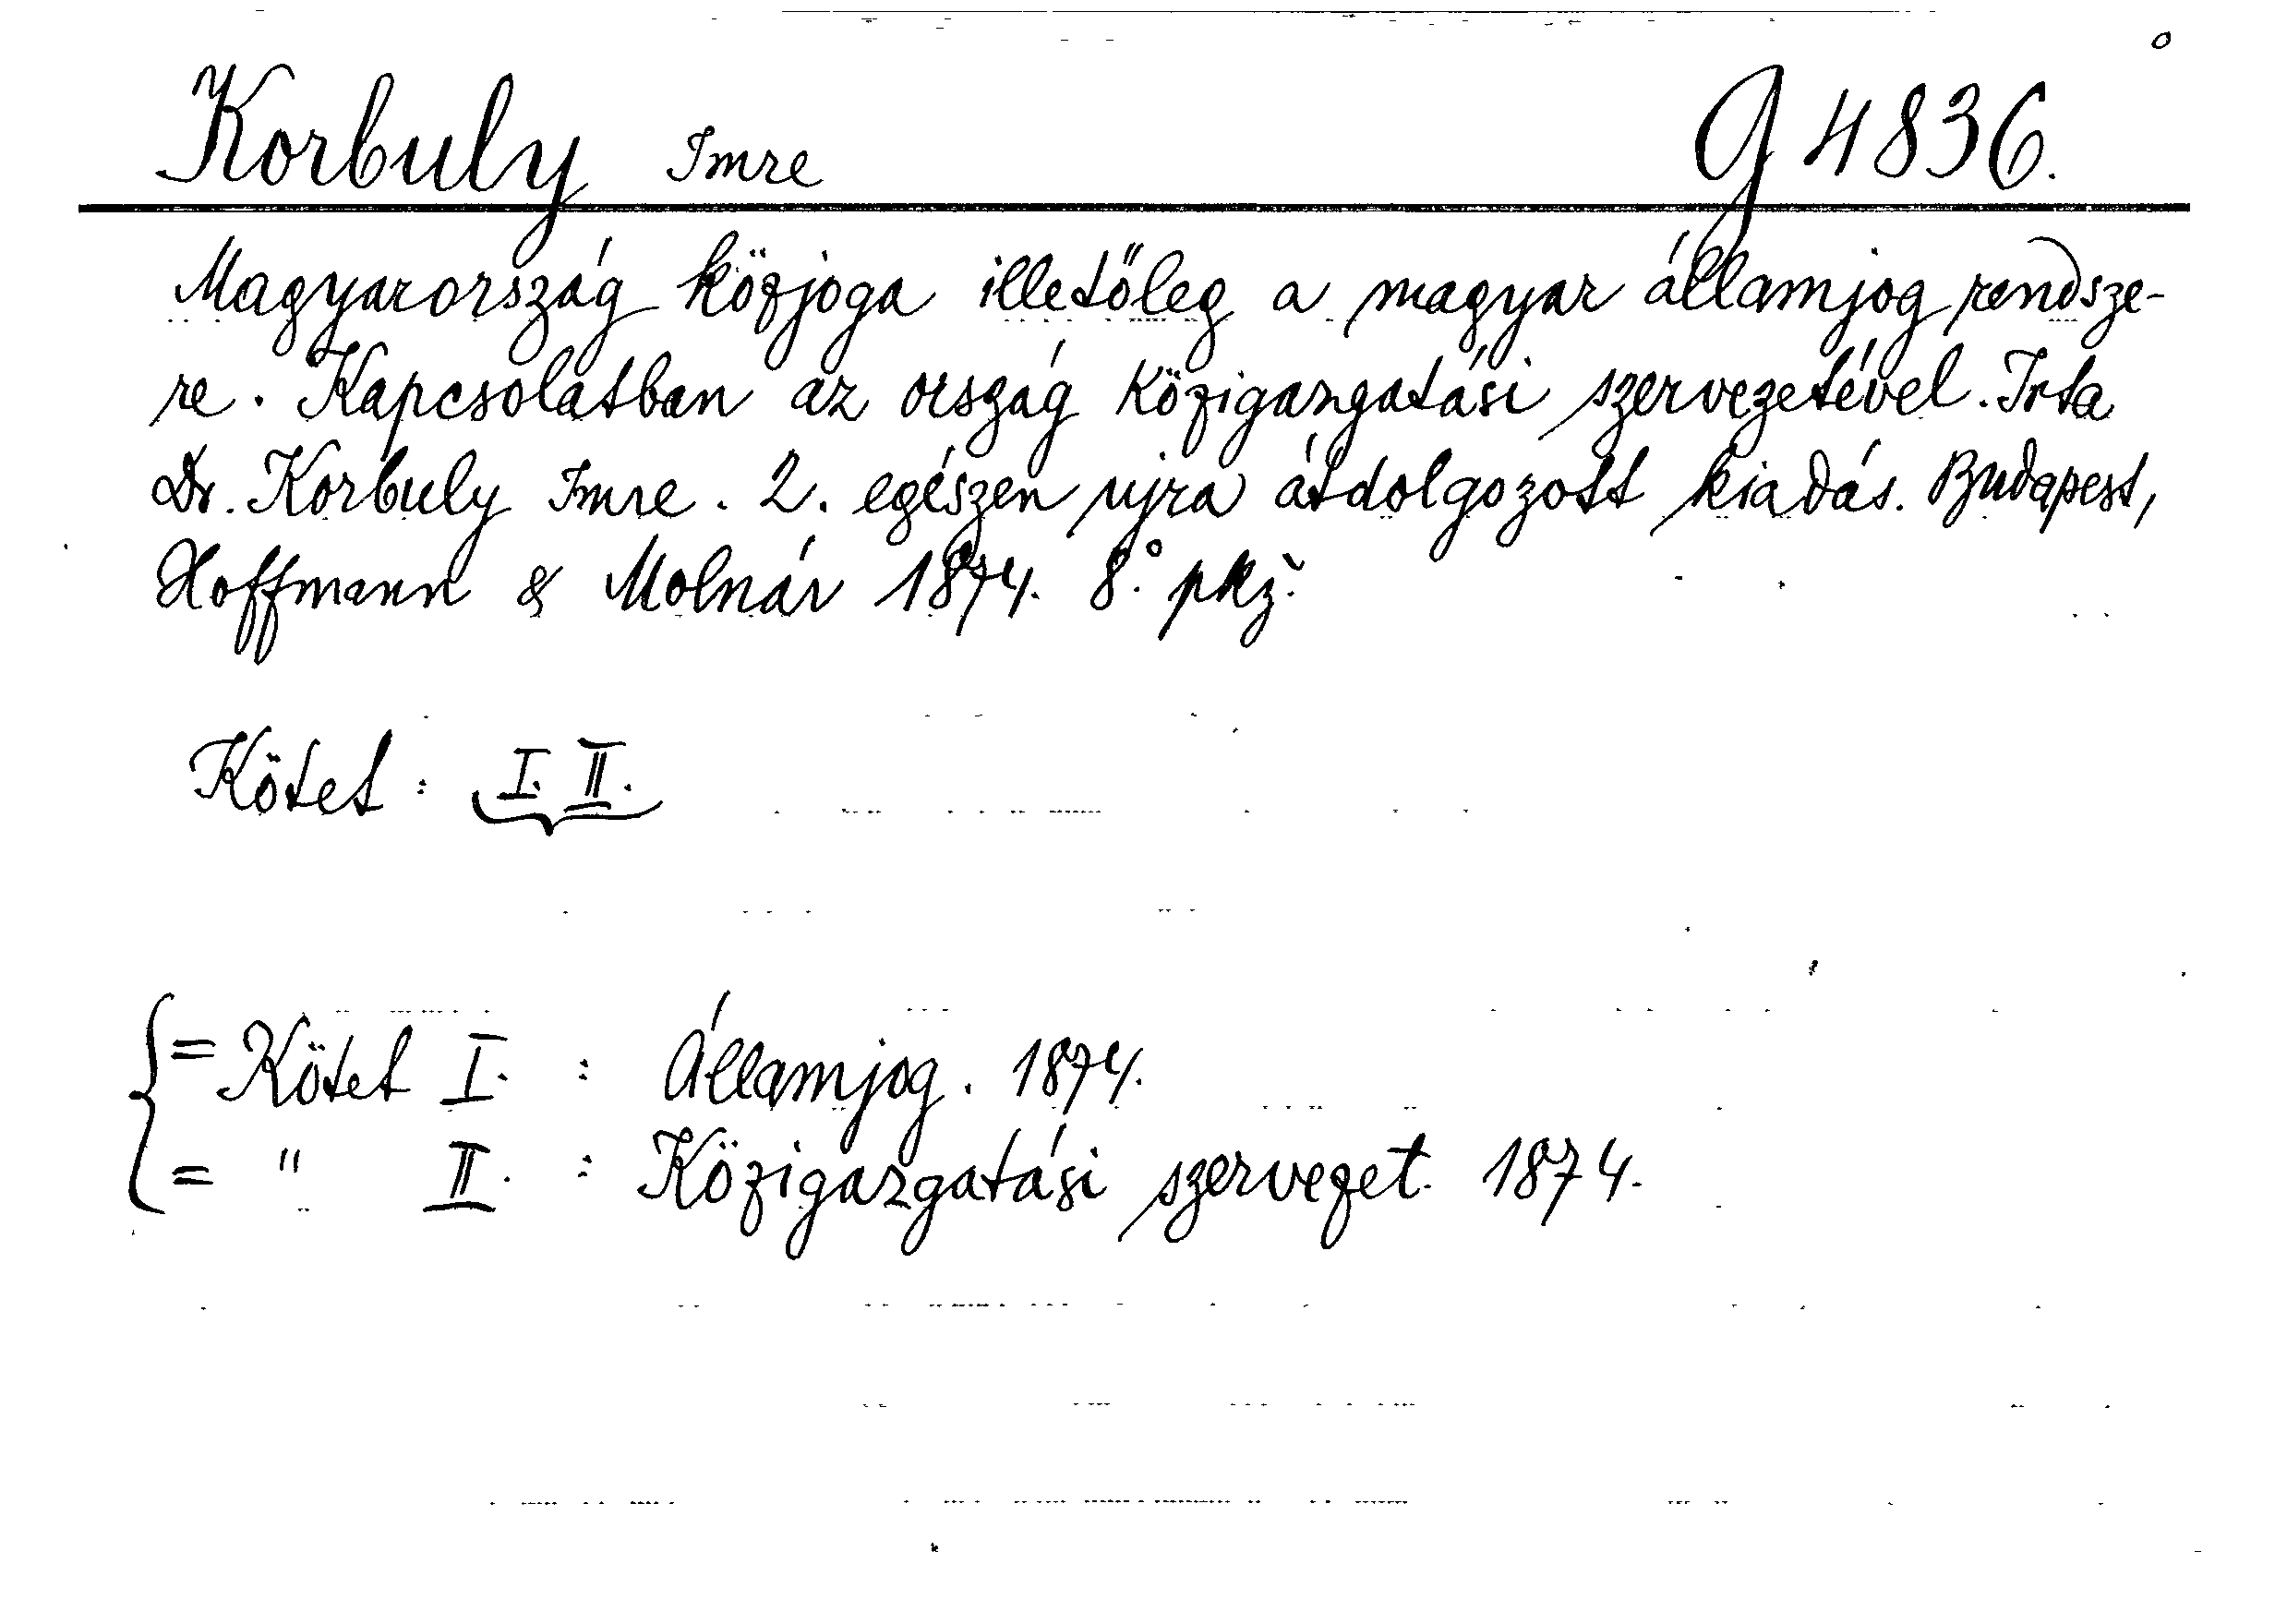 Korbuly Imre G 4836.
Magyarország közjoga illetőleg a magyar államjog rendsze-
re. Kapcsolatban az ország közigazgatási szervezetével. Irta
Dr. Korbuly Imre. 2. egészen ujra átdolgozott kiadás. Budapest,
Hoffmann & Molnár 1874. 8.° pkz.
Kötet: I. II.
= Kötet I. : Államjog. 1874.
= " II. : Közigazgatási szervezet. 1874.